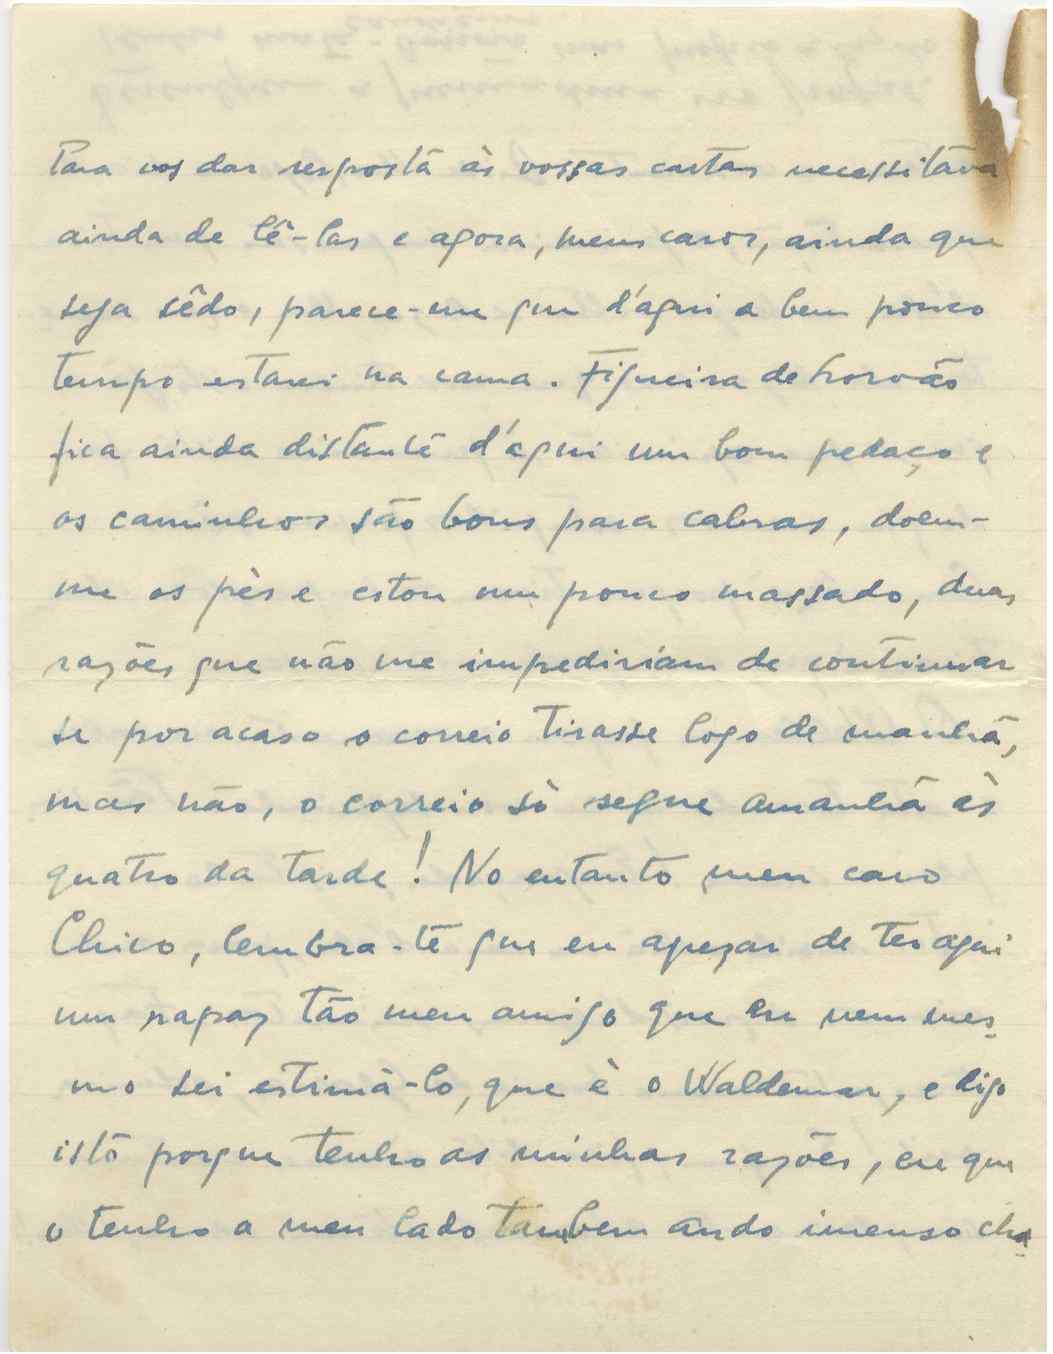 Para vos dar resposta às vossas cartas necessitava
ainda de lê-las e agora, meus caros, ainda que
seja sêdo, parece-me que d'aqui a bem pouco
tempo estarei na cama. Figueira de Lorvão
fica ainda distante d'aqui um bom pedaço e
os caminhos são bons para cabras, doem-
me os pès e estou um pouco massado, duas
razões que não me impediriam de continuar
se por acaso o correio tirasse logo de manhã,
mas não, o correio sò segue amanhã às
quatro da tarde! No entanto meu caro
Chico, lembra-te que eu apezar de ter aqui
um rapaz tão meu amigo que eu nem mes-
mo sei estimà-lo, que è o Waldemar, e digo
isto porque tenho as minhas razões, eu que
o tenho a meu lado tambem ando imenso cha-